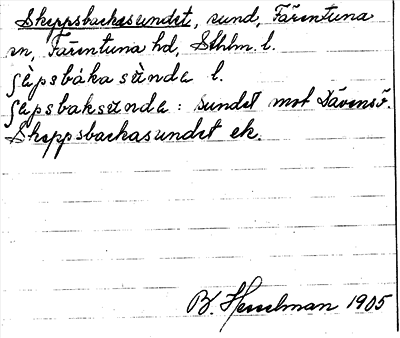 Skeppsbackasundet, sund, Färentuna
sn, Färentuna hd, Sthlm. l.
ʃäpsbáka sùnda l.
ʃäpsbaksúnda: sundet mot Dävensö.
Skeppsbackasundet ek.
B. Hesselman 1905